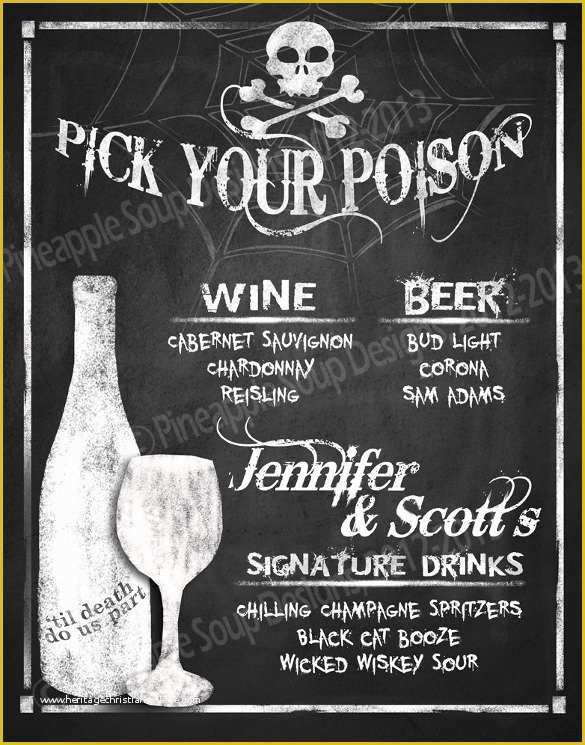 PICK YOUR POISON
WINE
CABERNET SAUVIGNON
CHARDONNAY
REISLING
BEER
BUD LIGHT
CORONA
SAM ADAMS
Jennifer
& Scott's
SIGNATURE DRINKS
CHILLING CHAMPAGNE SPRITZERS
BLACK CAT BOOZE
WICKED WISKEY SOUR
'til death
do us part
© Pineapple Soup Designs 2012-2013
www.heritagechristian